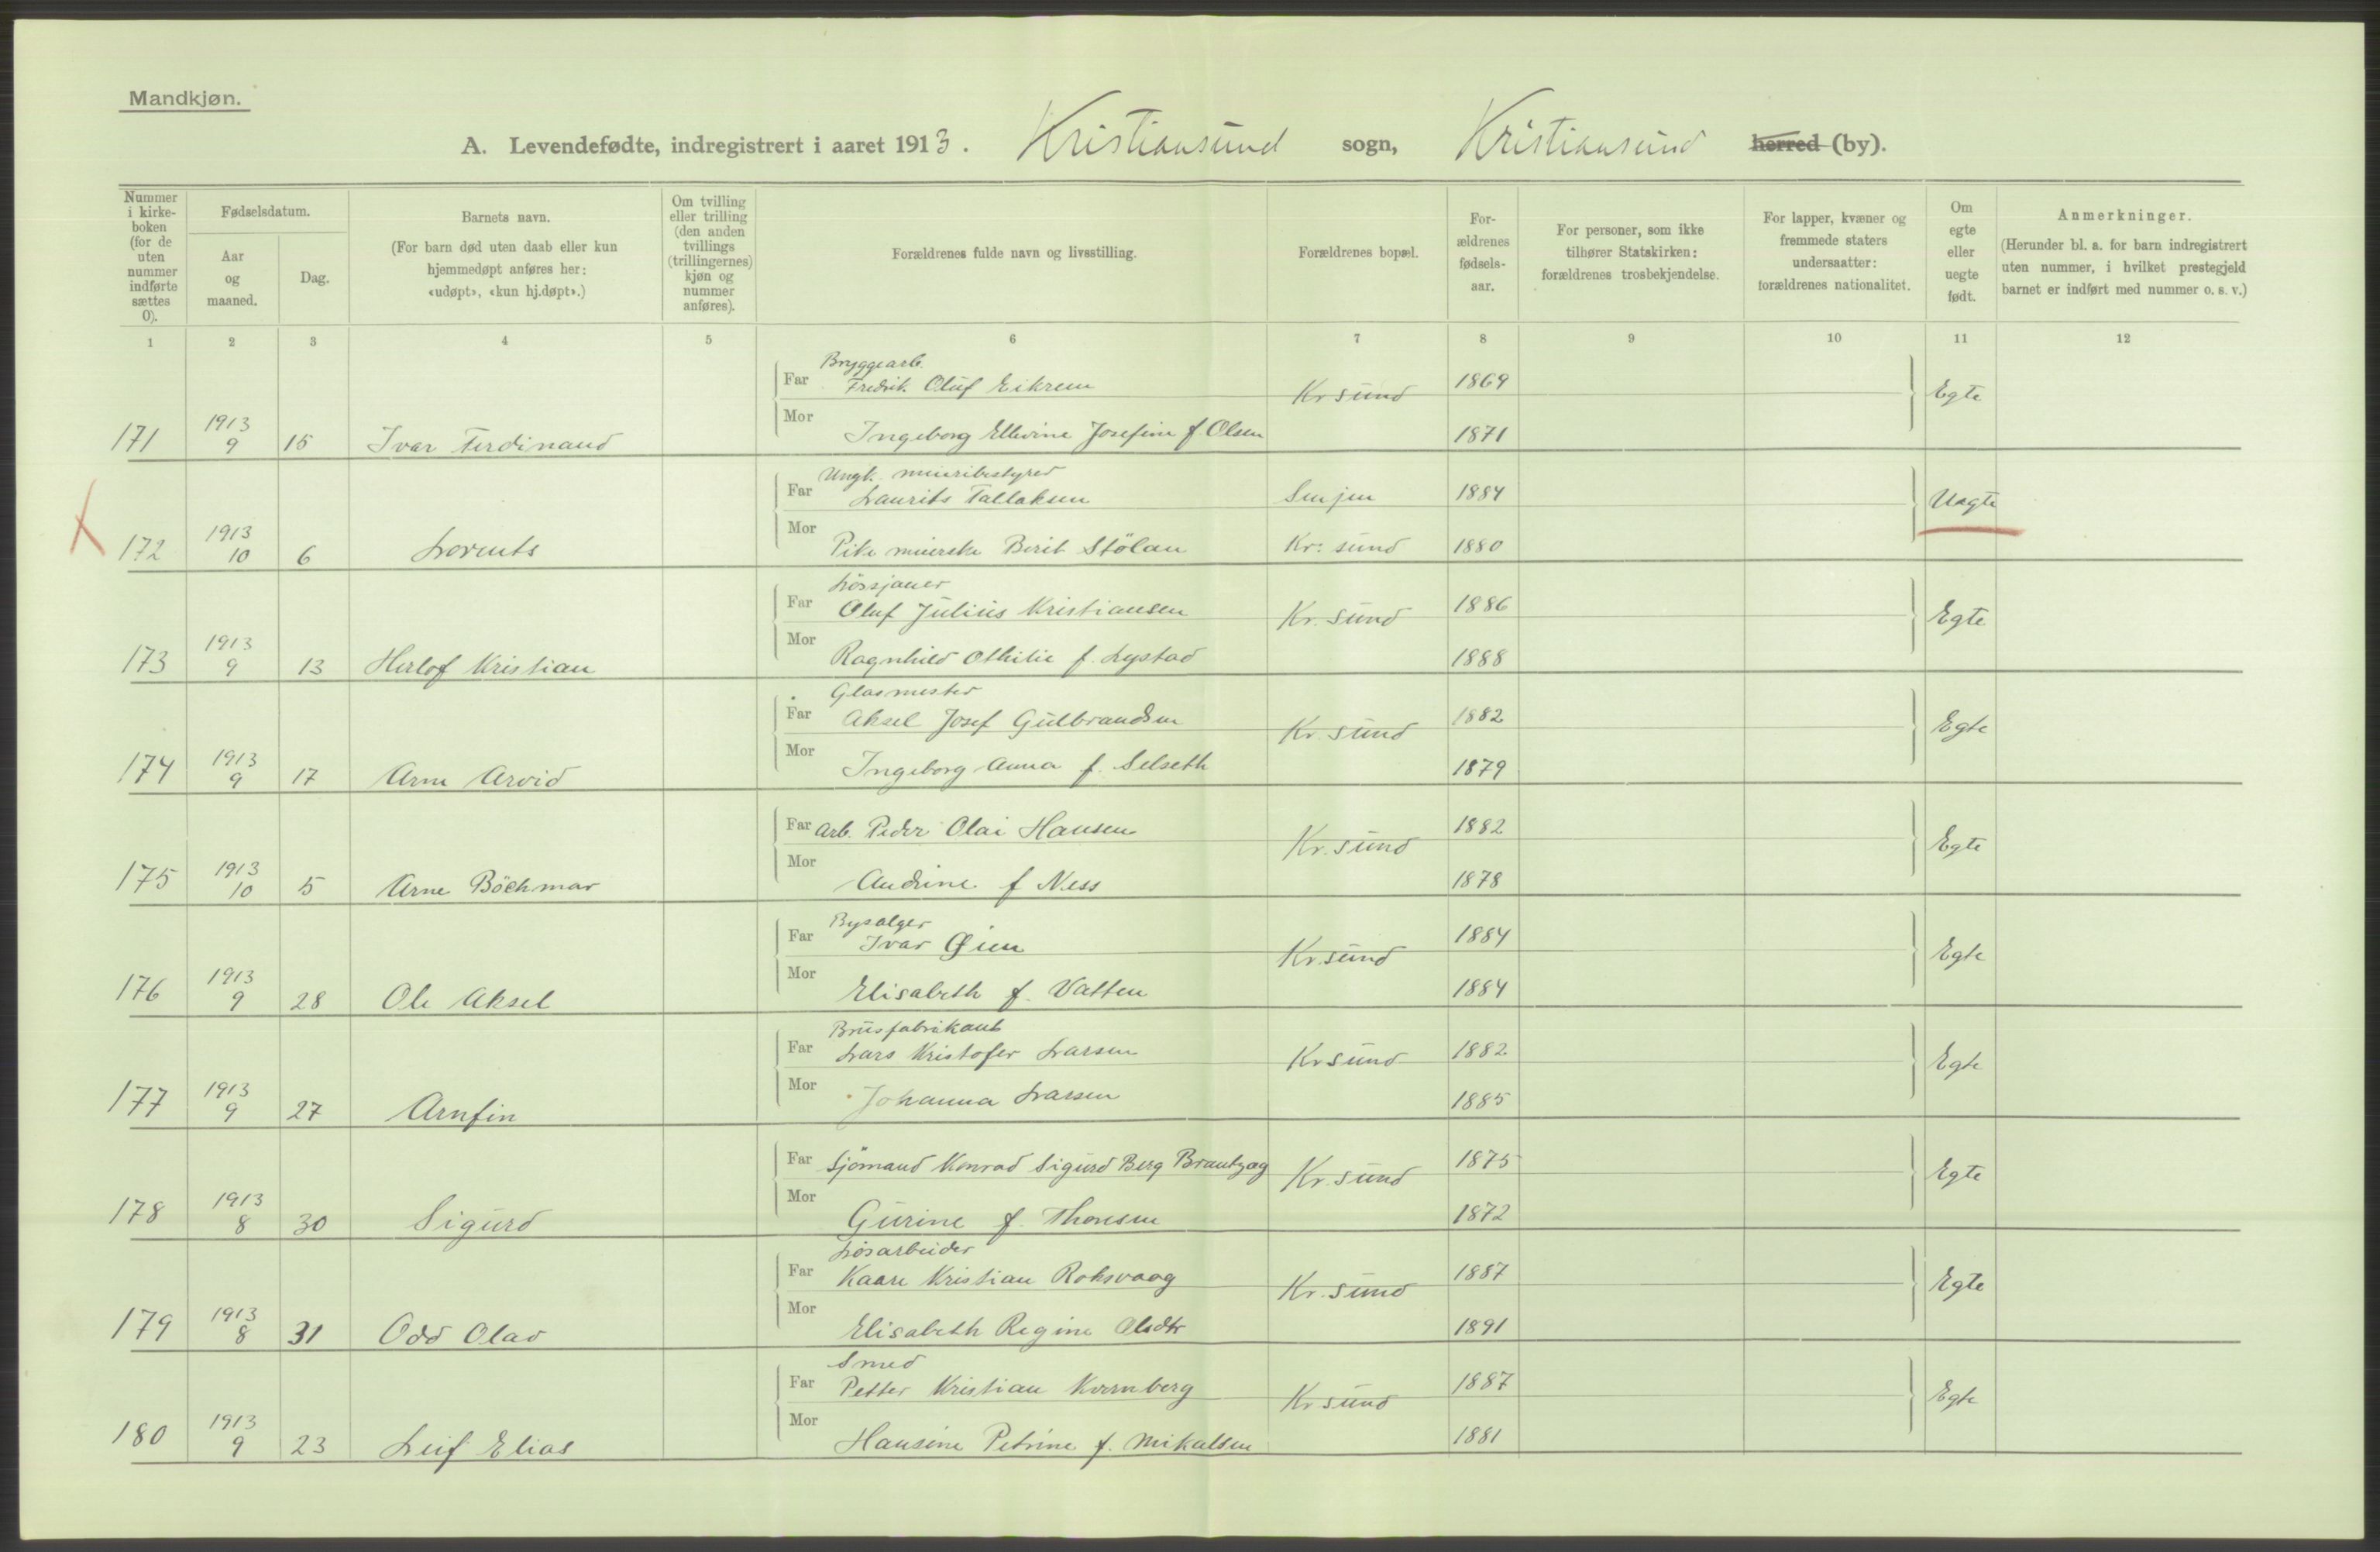 Mandkjøn.
A. Levendefødte, indregistrert i aaret 1913. Kristiansund sogn, Kristiansund herred (by).
Nummer i kirke-boken (for de uten nummer indførte sættes 0).
Fødselsdatum.
Aar og maaned.
Dag.
Barnets navn.
(For barn død uten daab eller kun hjemmedøpt anføres her: «udøpt», «kun hj.døpt».)
Om tvilling eller trilling (den anden tvillings (trillingernes) kjøn og nummer anføres).
Forældrenes fulde navn og livsstilling.
Forældrenes bopæl.
For-ældrenes fødsels-aar.
For personer, som ikke tilhører Statskirken: forældrenes trosbekjendelse.
For lapper, kvæner og fremmede staters undersaatter: forældrenes nationalitet.
Om egte eller uegte født.
Anmerkninger.
(Herunder bl. a. for barn indregistrert uten nummer, i hvilket prestegjeld barnet er indført med nummer o. s. v.)
1 2 3 4 5 6 7 8 9 10 11 12
Bryggearb.
Far Fredrik Oluf Eikrem Kr sund 1869 Egte
171 1913 9 15 Ivar Ferdinand Mor Ingeborg Ellevine Josefine f. Olsen 1871
Ungk. meieribestyrer
Far Laurits Tallaksen Senjen 1884 Uegte
X 172 1913 10 6 Lorents Mor Pike meierske Berit Stölan Kr: sund 1880
Lössjauer
Far Oluf Julius Kristiansen Kr. sund 1886 Egte
173 1913 9 13 Herlof Kristian Mor Ragnhild Othilie f. Lystad 1888
Glasmester
Far Aksel Josef Gulbrandsen Kr. sund 1882 Egte
174 1913 9 17 Arne Arvid Mor Ingeborg Anna f. Selseth 1879
Far Arb. Peder Olai Hansen Kr. sund 1882 Egte
175 1913 10 5 Arne Böchmar Mor Andrine f Ness 1878
Bysælger
Far Ivar Øien Kr. sund 1884 Egte
176 1913 9 28 Ole Aksel Mor Elisabeth f. Vatten 1884
Brusfabrikant
Far Lars Kristofer Larsen Kr sund 1882 Egte
177 1913 9 27 Arnfin Mor Johanna Larsen 1885
Far Sjömand Konrad Sigurd Berg Brantzæg Kr. sund 1875 Egte
178 1913 8 30 Sigurd Mor Gurine f. Thoresen 1872
Lösarbeider
Far Kaare Kristian Roksvaag Kr. sund 1887 Egte
179 1913 8 31 Odd Olav Mor Elisabeth Regine Olsdtr 1891
Smed
Far Petter Kristian Kvernberg Kr sund 1887 Egte
180 1913 9 23 Leif Elias Mor Hansine Petrine f. Mikalsen 1881